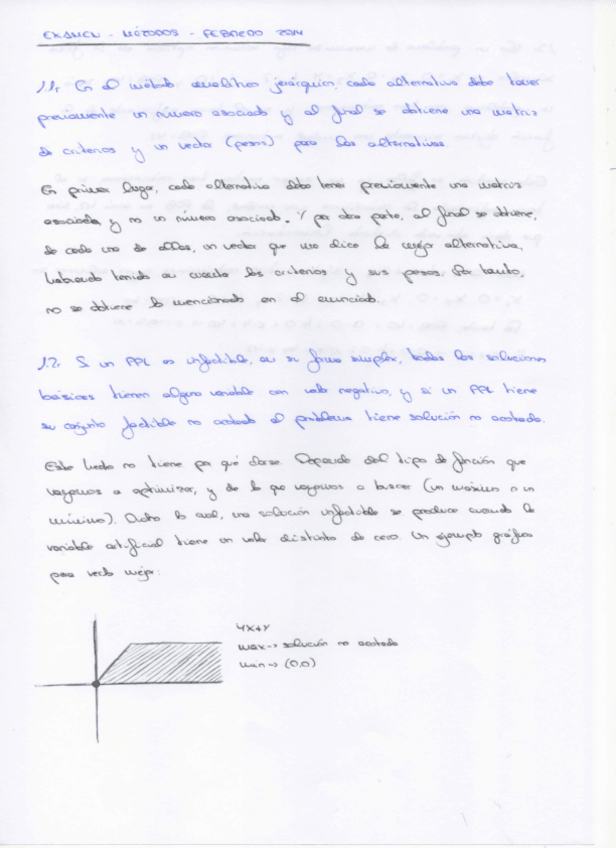 EXAMEN - MÉTODOS - FEBRERO 2014
1.1. En el método analítico jerárquico, cada alternativa debe tener
previamente un número asociado y al final se obtiene una matriz
de criterios y un vector (pesos) para las alternativas.
En primer lugar, cada alternativa debe tener previamente una matriz
asociada y no un número asociado. Y por otra parte, al final se obtiene,
de cada una de ellas, un vector que nos dice la mejor alternativa,
habiendo tenido en cuenta los criterios y sus pesos. Por tanto,
no se obtiene lo mencionado en el enunciado.
1.2. Si un PPL es infactible, en su forma simplex, todas las soluciones
básicas tienen alguna variable con valor negativo, y si un PPL tiene
su conjunto factible no acotado el problema tiene solución no acotada.
Este hecho no tiene por qué darse. Depende del tipo de función que
vayamos a optimizar, y de lo que vayamos a buscar (un máximo o un
mínimo). Dicho lo cual, una solución infactible se produce cuando la
variable artificial tiene un valor distinto de cero. Un ejemplo gráfico
para verlo mejor:
4x+y
max -> solución no acotada
min -> (0,0)